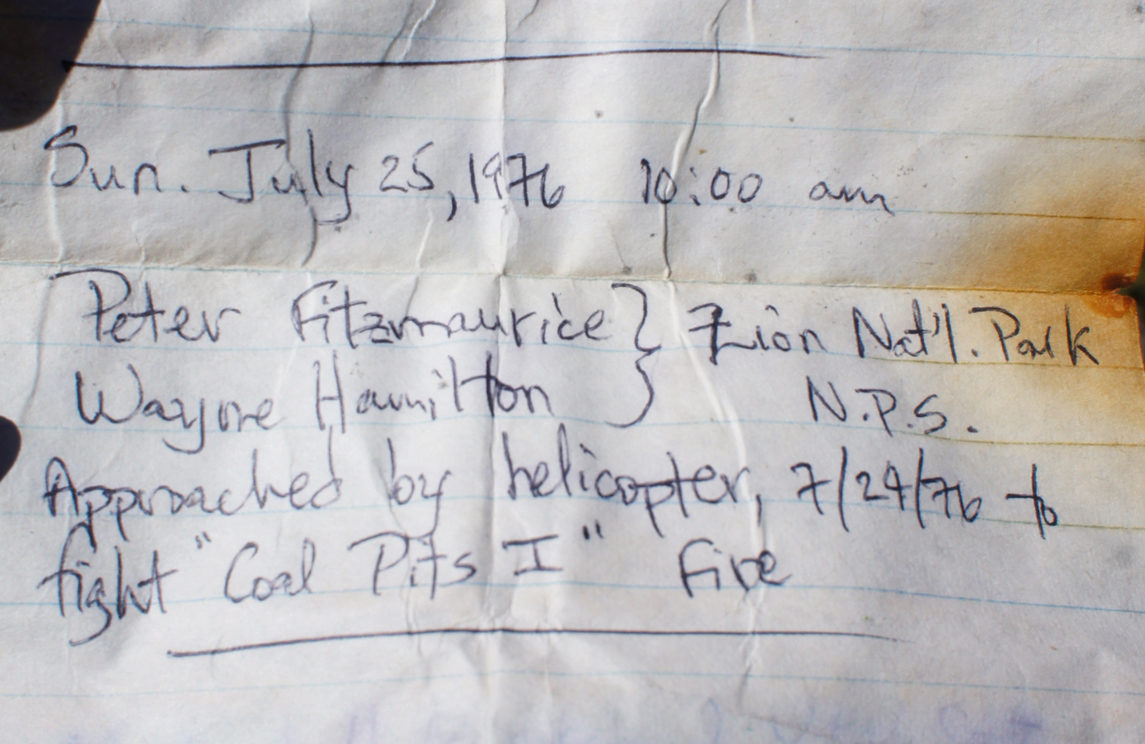 Sun. July 25, 1976 10:00 am
Peter Fitzmaurice } Zion Nat'l. Park
Wayne Hamilton } N.P.S.
Approached by helicopter, 7/24/76 to
fight "Coal Pits I" fire